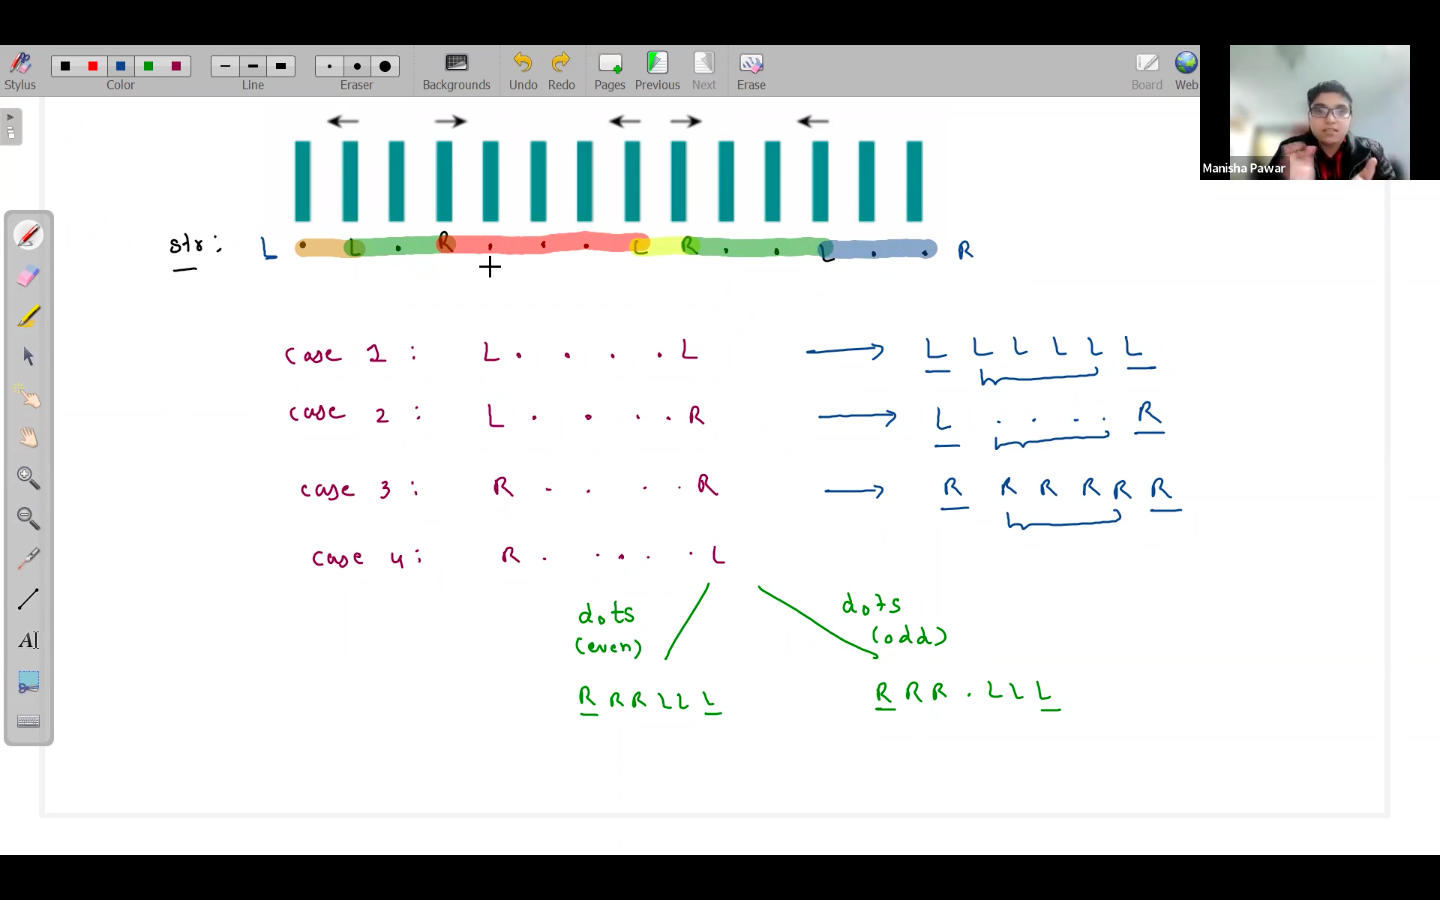 Stylus Color Line Eraser Backgrounds Undo Redo Pages Previous Next Erase Board Web
Manisha Pawar
str : L . L . R . . . L R . . L . . R
case 1 : L . . . . L → L L L L L L
case 2 : L . . . . R → L . . . . R
case 3 : R . . . . R → R R R R R R
case 4 : R . . . . . L
dots dots
(even) (odd)
R R R L L L R R R . L L L